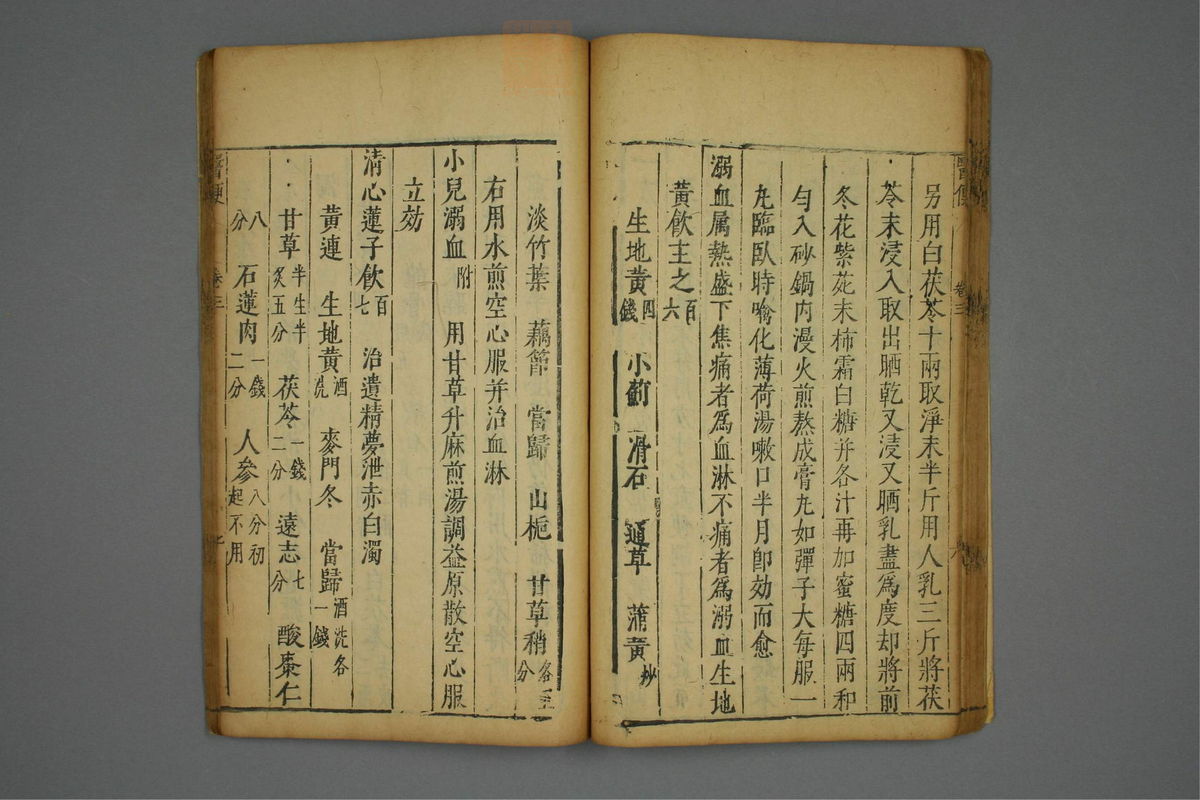 醫便 卷三 六
另用白茯苓十兩取淨末半斤用人乳三斤將茯
苓末浸入取出晒乾又浸又晒乳盡爲度却將前
冬花紫菀末柿霜白糖并各汁再加蜜糖四兩和
勻入砂鍋内漫火煎熬成膏丸如彈子大每服一
丸臨臥時噙化薄荷湯嗽口半月即効而愈
溺血属熱盛下焦痛者爲血淋不痛者爲溺血生地
黄飲主之百六
生地黄四錢 小薊 滑石 通草 蒲黄炒
淡竹葉 藕節 當歸 山梔 甘草稍各五分
右用水煎空心服并治血淋
小兒溺血附 用甘草升麻煎湯調益原散空心服
立効
清心蓮子飲百七 治遺精夢泄赤白濁
黄連 生地黄酒洗 麥門冬 當歸酒洗各一錢
甘草半生半炙五分 茯苓一錢二分 遠志七分 酸棗仁
八分 石蓮肉一錢二分 人參八分初起不用
醫便 卷三